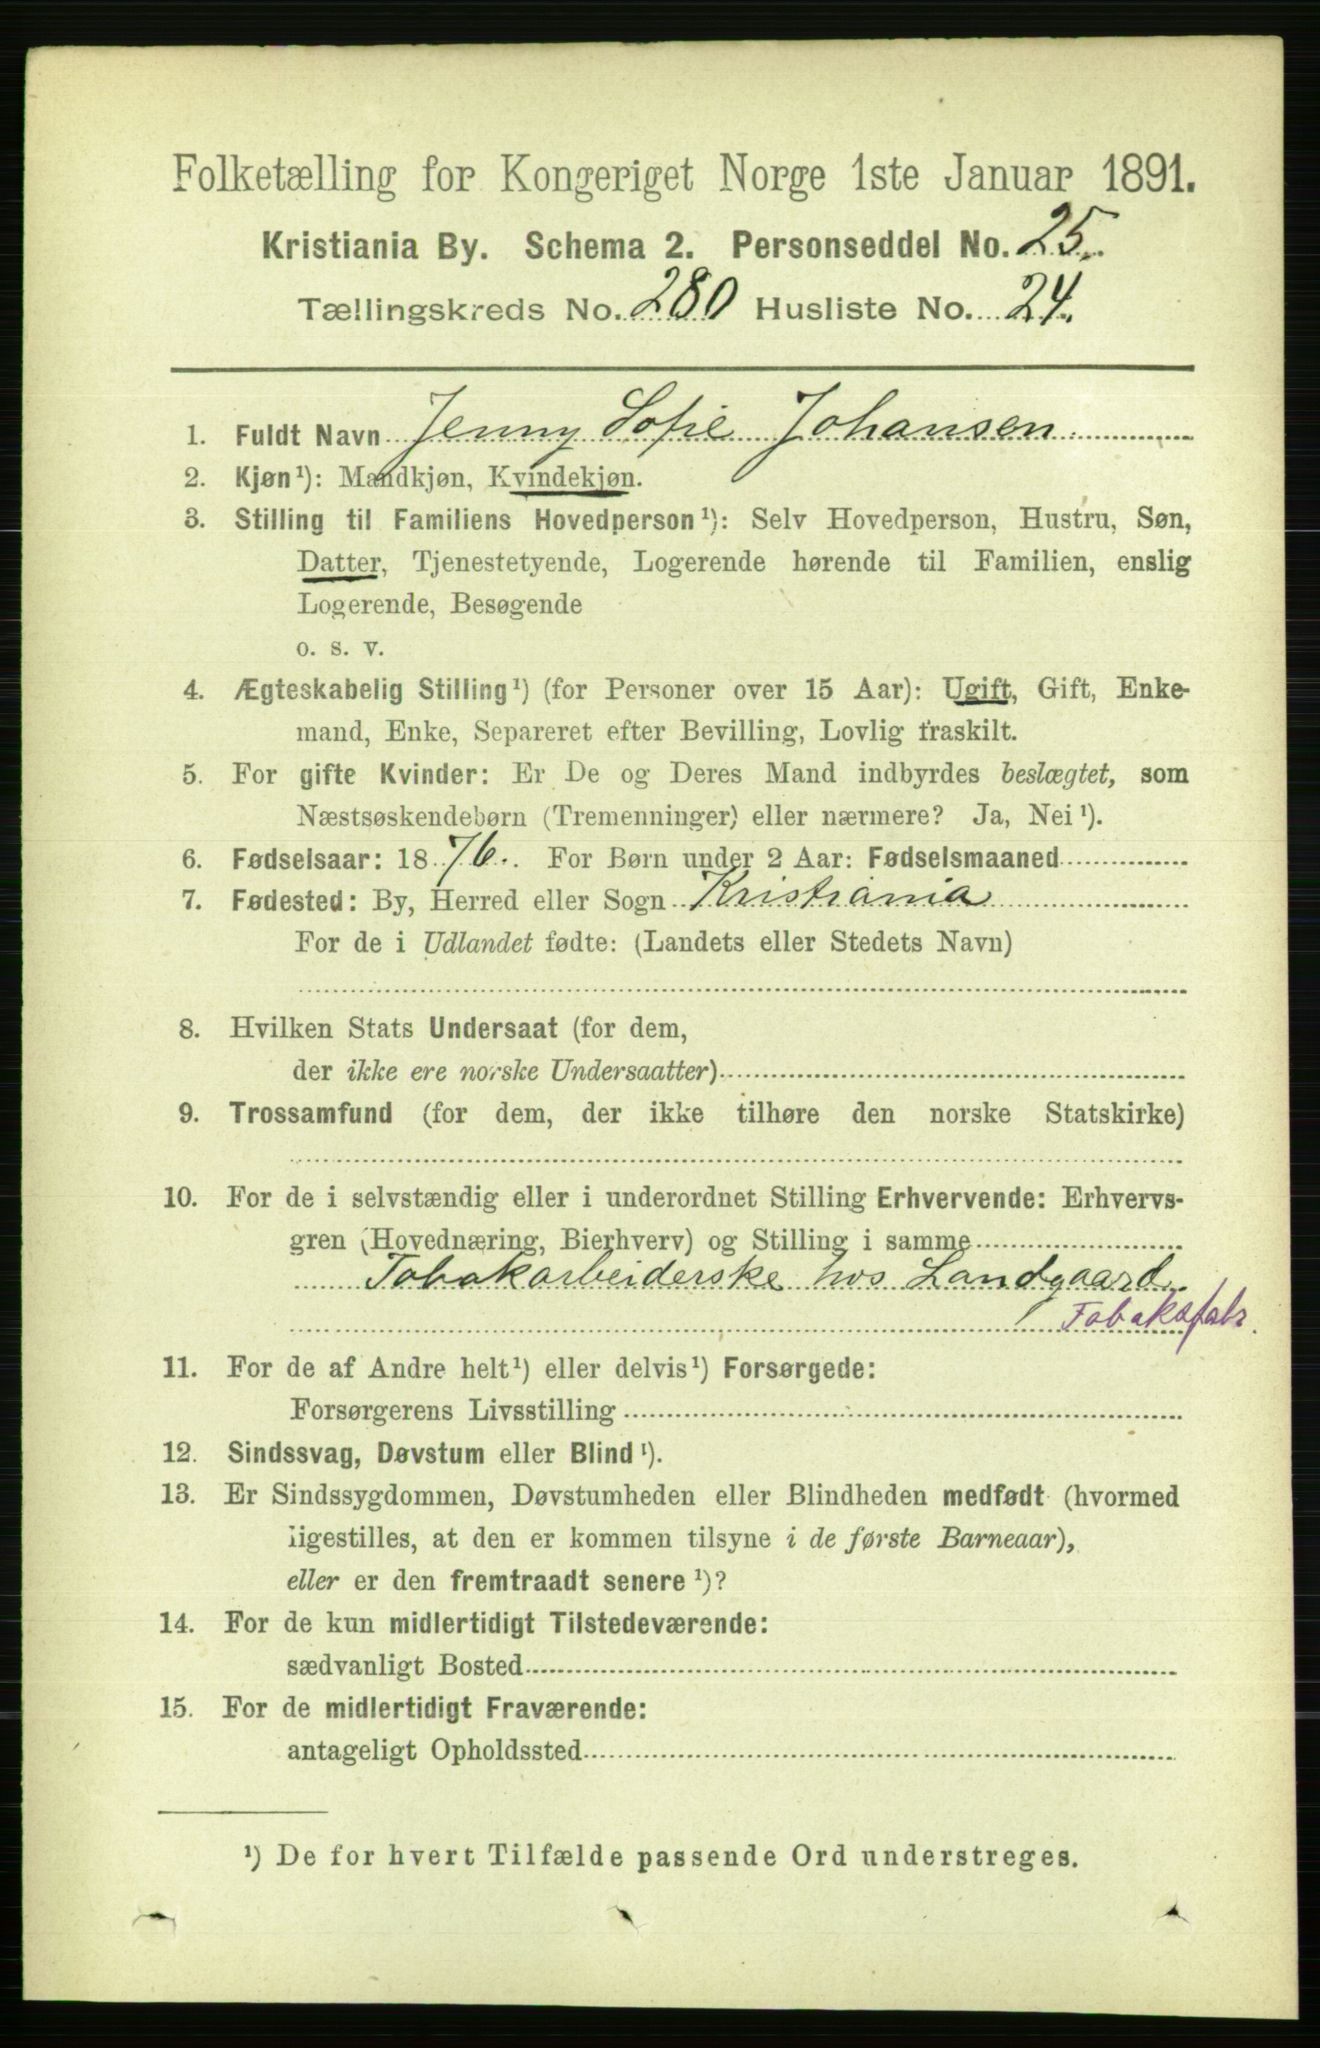 Folketælling for Kongeriget Norge 1ste Januar 1891.
Kristiania By. Schema 2. Personseddel No. 25.
Tællingskreds No. 280 Husliste No. 24.
1. Fuldt Navn Jenny Sofie Johansen
2. Kjøn¹): Mandkjøn, Kvindekjøn.
3. Stilling til Familiens Hovedperson¹): Selv Hovedperson, Hustru, Søn,
Datter, Tjenestetyende, Logerende hørende til Familien, enslig
Logerende, Besøgende
o. s. v.
4. Ægteskabelig Stilling¹) (for Personer over 15 Aar): Ugift, Gift, Enke-
mand, Enke, Separeret efter Bevilling, Lovlig fraskilt.
5. For gifte Kvinder: Er De og Deres Mand indbyrdes beslægtet, som
Næstsøskendebørn (Tremenninger) eller nærmere? Ja, Nei¹).
6. Fødselsaar: 1876. For Børn under 2 Aar: Fødselsmaaned
7. Fødested: By, Herred eller Sogn Kristiania
For de i Udlandet fødte: (Landets eller Stedets Navn)
8. Hvilken Stats Undersaat (for dem,
der ikke ere norske Undersaatter)
9. Trossamfund (for dem, der ikke tilhøre den norske Statskirke)
10. For de i selvstændig eller i underordnet Stilling Erhvervende: Erhvervs-
gren (Hovednæring, Bierhverv) og Stilling i samme
Tobakarbeiderske hos Landgaard.
Tobaksfabr.
11. For de af Andre helt¹) eller delvis¹) Forsørgede:
Forsørgerens Livsstilling
12. Sindssvag, Døvstum eller Blind¹).
13. Er Sindssygdommen, Døvstumheden eller Blindheden medfødt (hvormed
ligestilles, at den er kommen tilsyne i de første Barneaar),
eller er den fremtraadt senere¹)?
14. For de kun midlertidigt Tilstedeværende:
sædvanligt Bosted
15. For de midlertidigt Fraværende:
antageligt Opholdssted
¹) De for hvert Tilfælde passende Ord understreges.